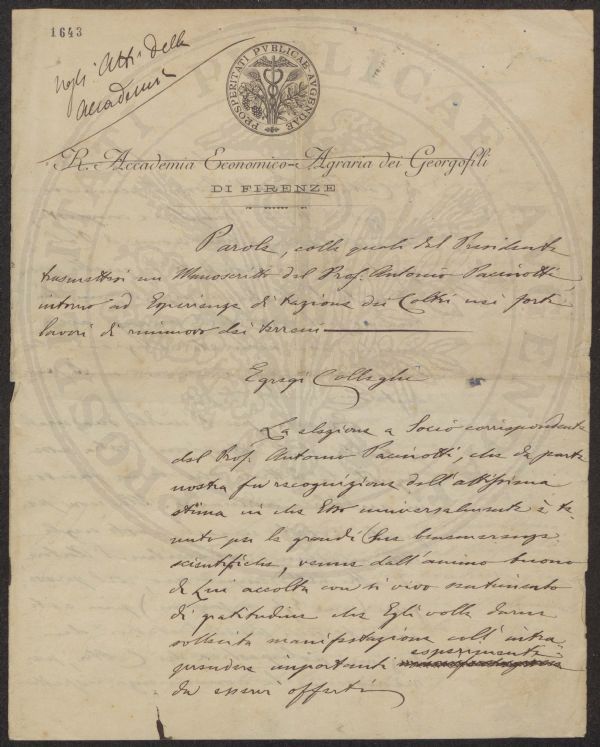 1643
negli Atti della
Accademia
PROSPERITATI PVBLICAE AVGENDAE
R. Accademia Economico-Agraria dei Georgofili
DI FIRENZE
Parole, colle quali dal Presidente
trasmettesi un Manoscritto del Prof. Antonio Pacinotti
intorno ad Esperienze di trazione dei Coltri nei forti
lavori di rinnuovo dei terreni
Egregi Colleghi
La elezione a Socio corrispondente
del Prof. Antonio Pacinotti, che da parte
nostra fu recognizione dell'altissima
stima in che Esso universalmente è te-
nuto per le grandi Sue benemerenze
scientifiche, venne dall'animo buono
di Lui accolta con sì vivo sentimento
di gratitudine che Egli volle darne
sollecita manifestazione coll'intra
prendere importanti esperimenti
da esservi offerti